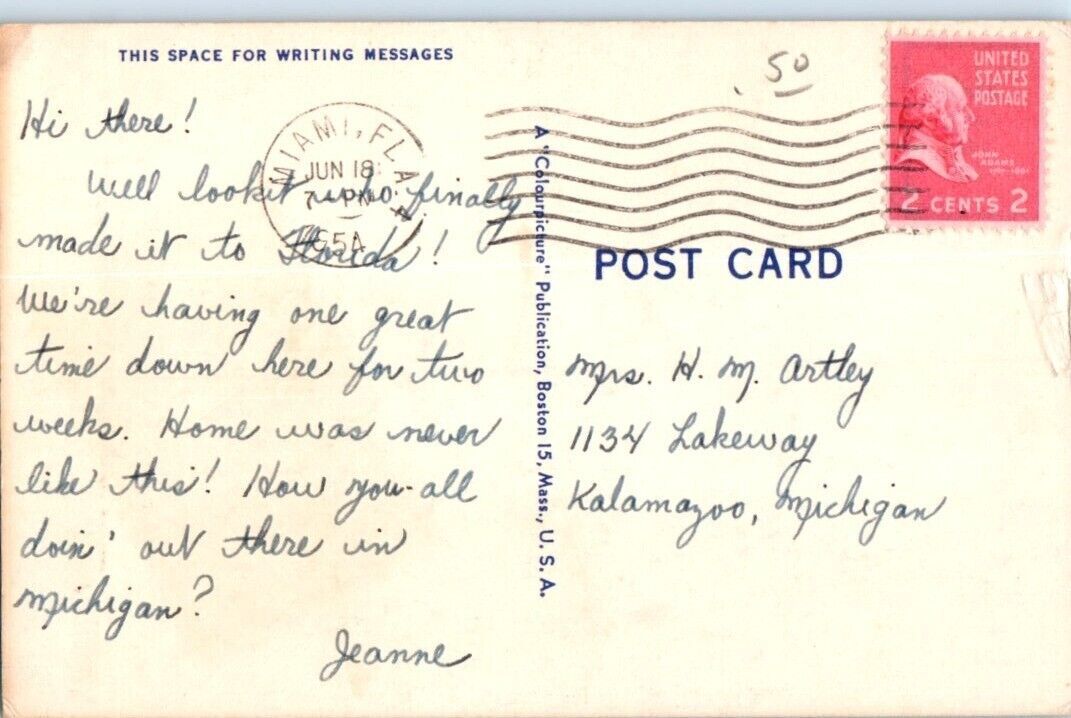 THIS SPACE FOR WRITING MESSAGES
Hi there!
Well lookit who finally
made it to Florida!
We're having one great
time down here for two
weeks. Home was never
like this! How you-all
doin' out there in
Michigan?
Jeanne
MIAMI, FLA.
JUN 18
7 PM
1954
A "Colourpicture" Publication, Boston 15, Mass., U. S. A.
50
UNITED
STATES
POSTAGE
JOHN
ADAMS
2 CENTS 2
POST CARD
Mrs. H. M. Artley
1134 Lakeway
Kalamazoo, Michigan